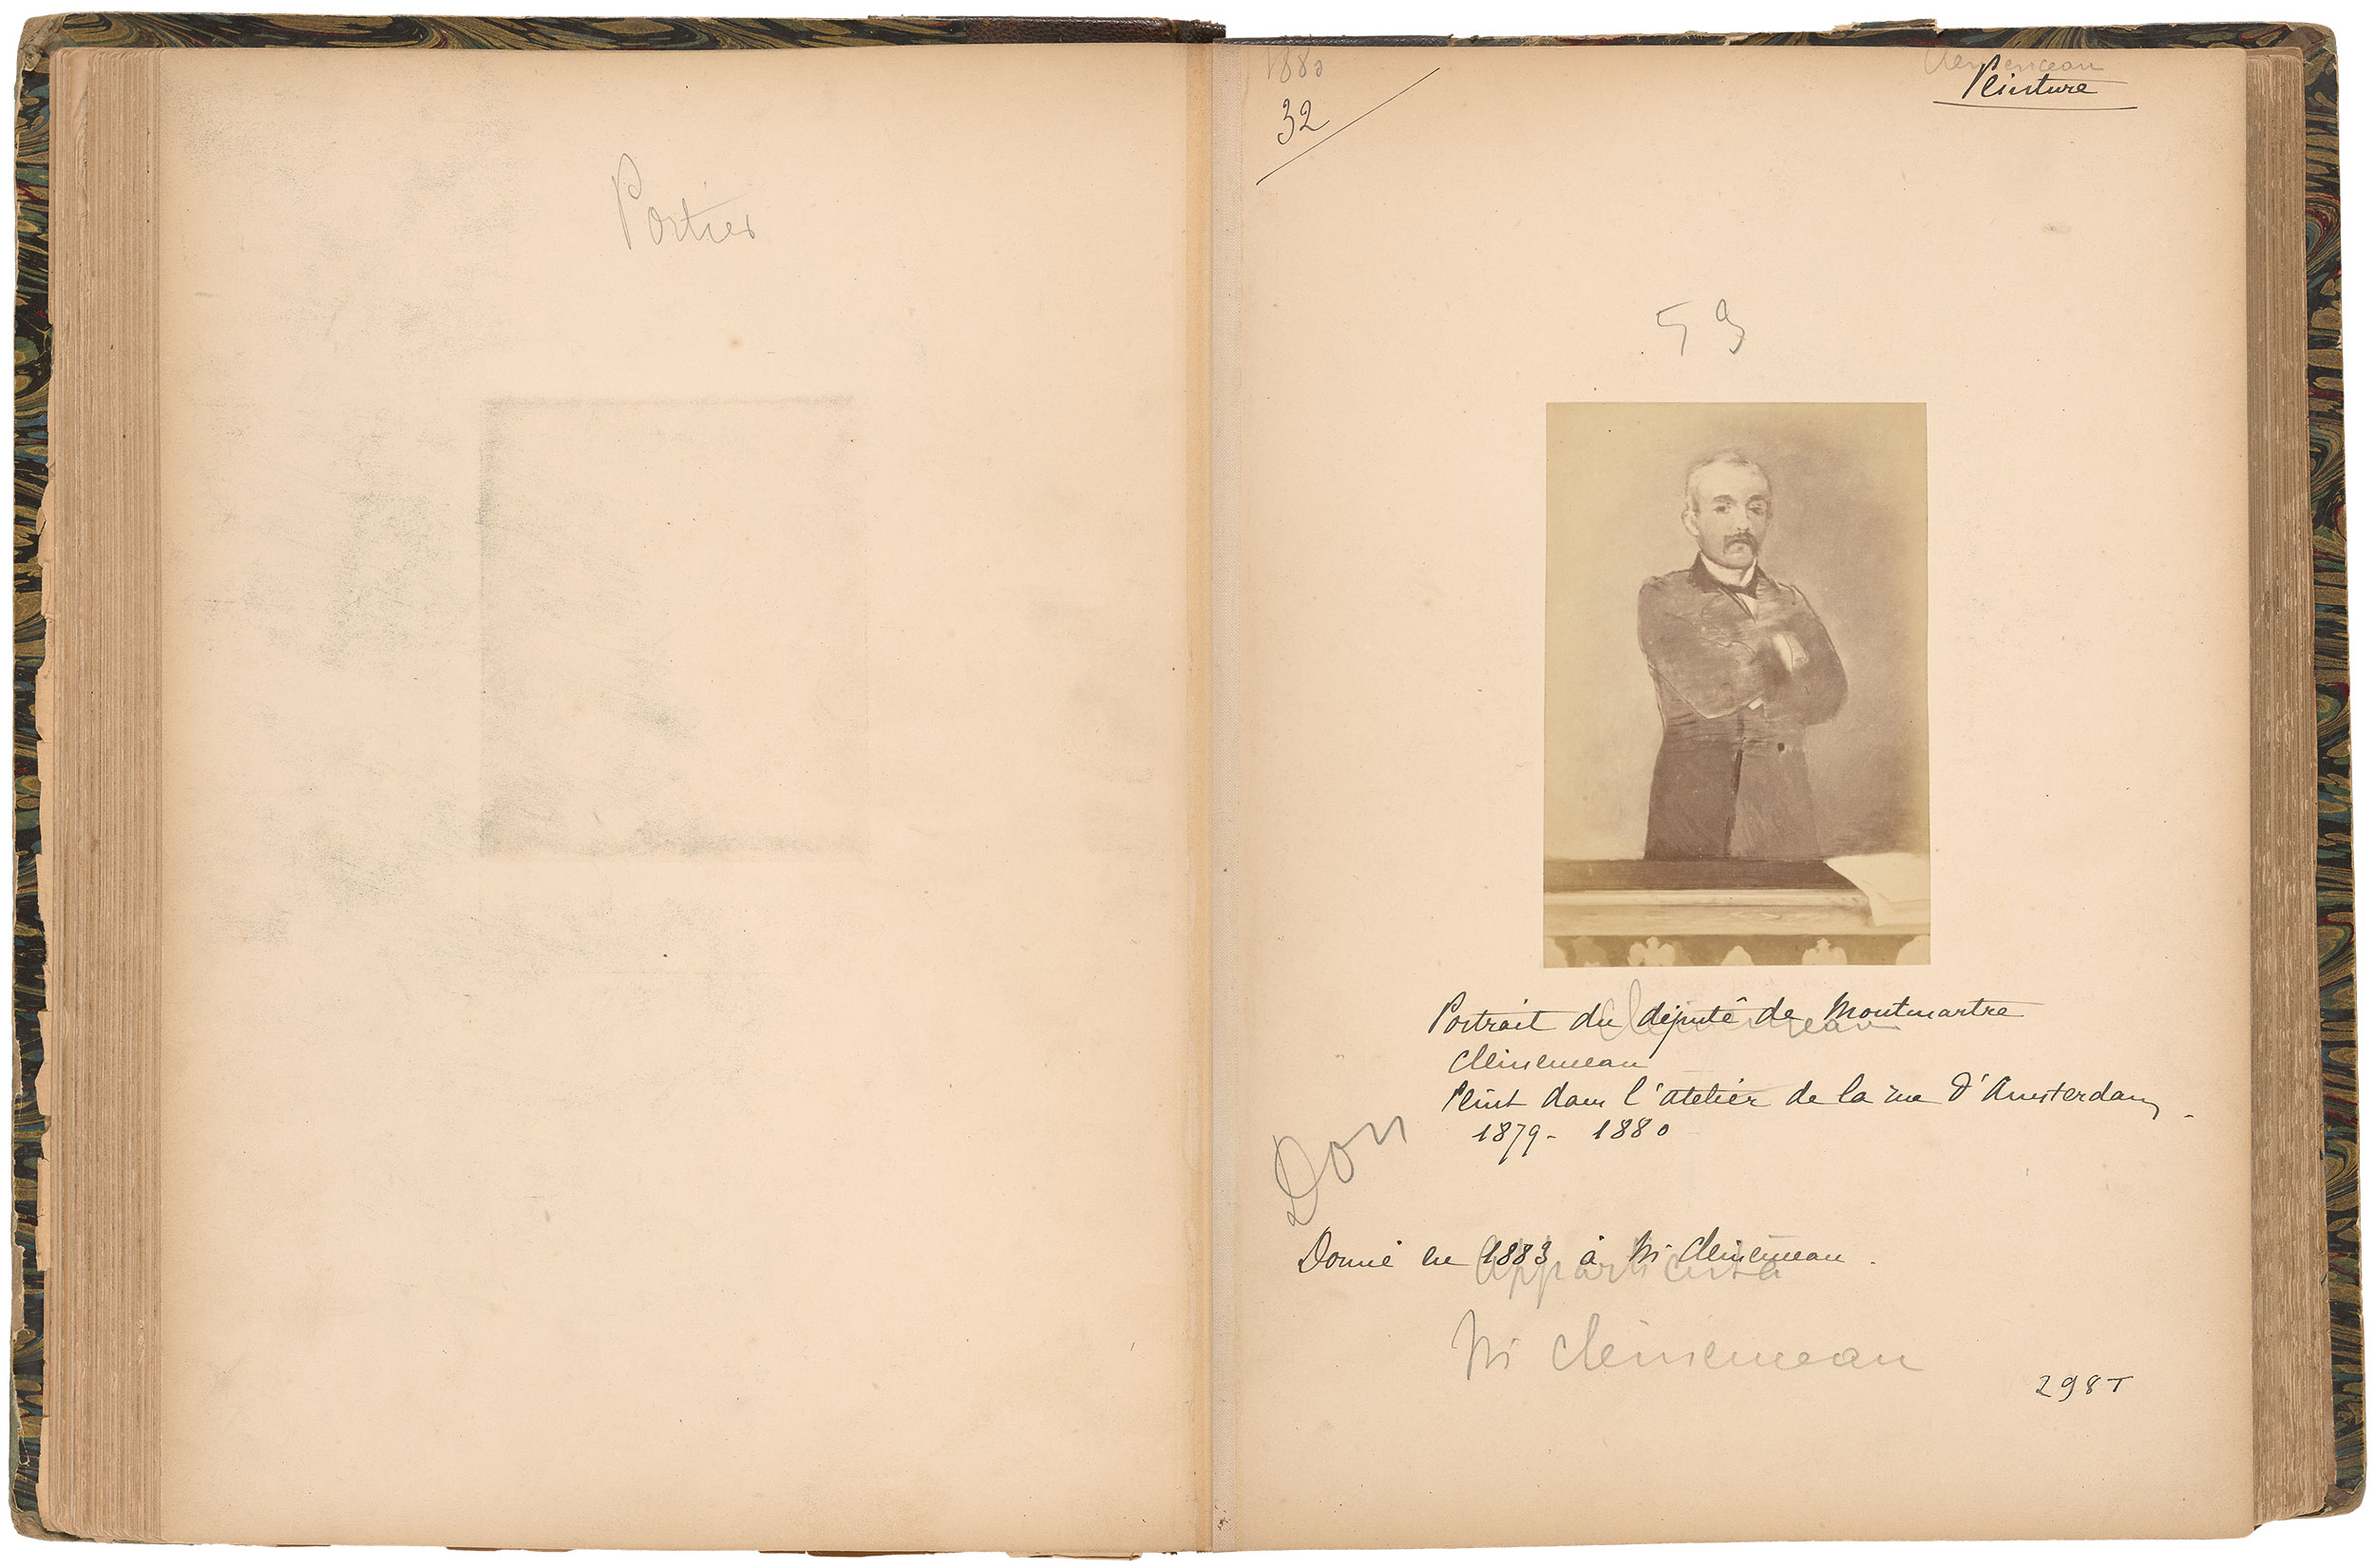 Portier
1880
32
Clemenceau
Peinture
59
Portrait du député de Montmartre
Clemenceau
Clémenceau
Peint dans l'atelier de la rue d'Amsterdam -
1879 - 1880
Don
Donné en 1883 à Mr Clémenceau.
Appartient à
Mr Clémenceau
298T